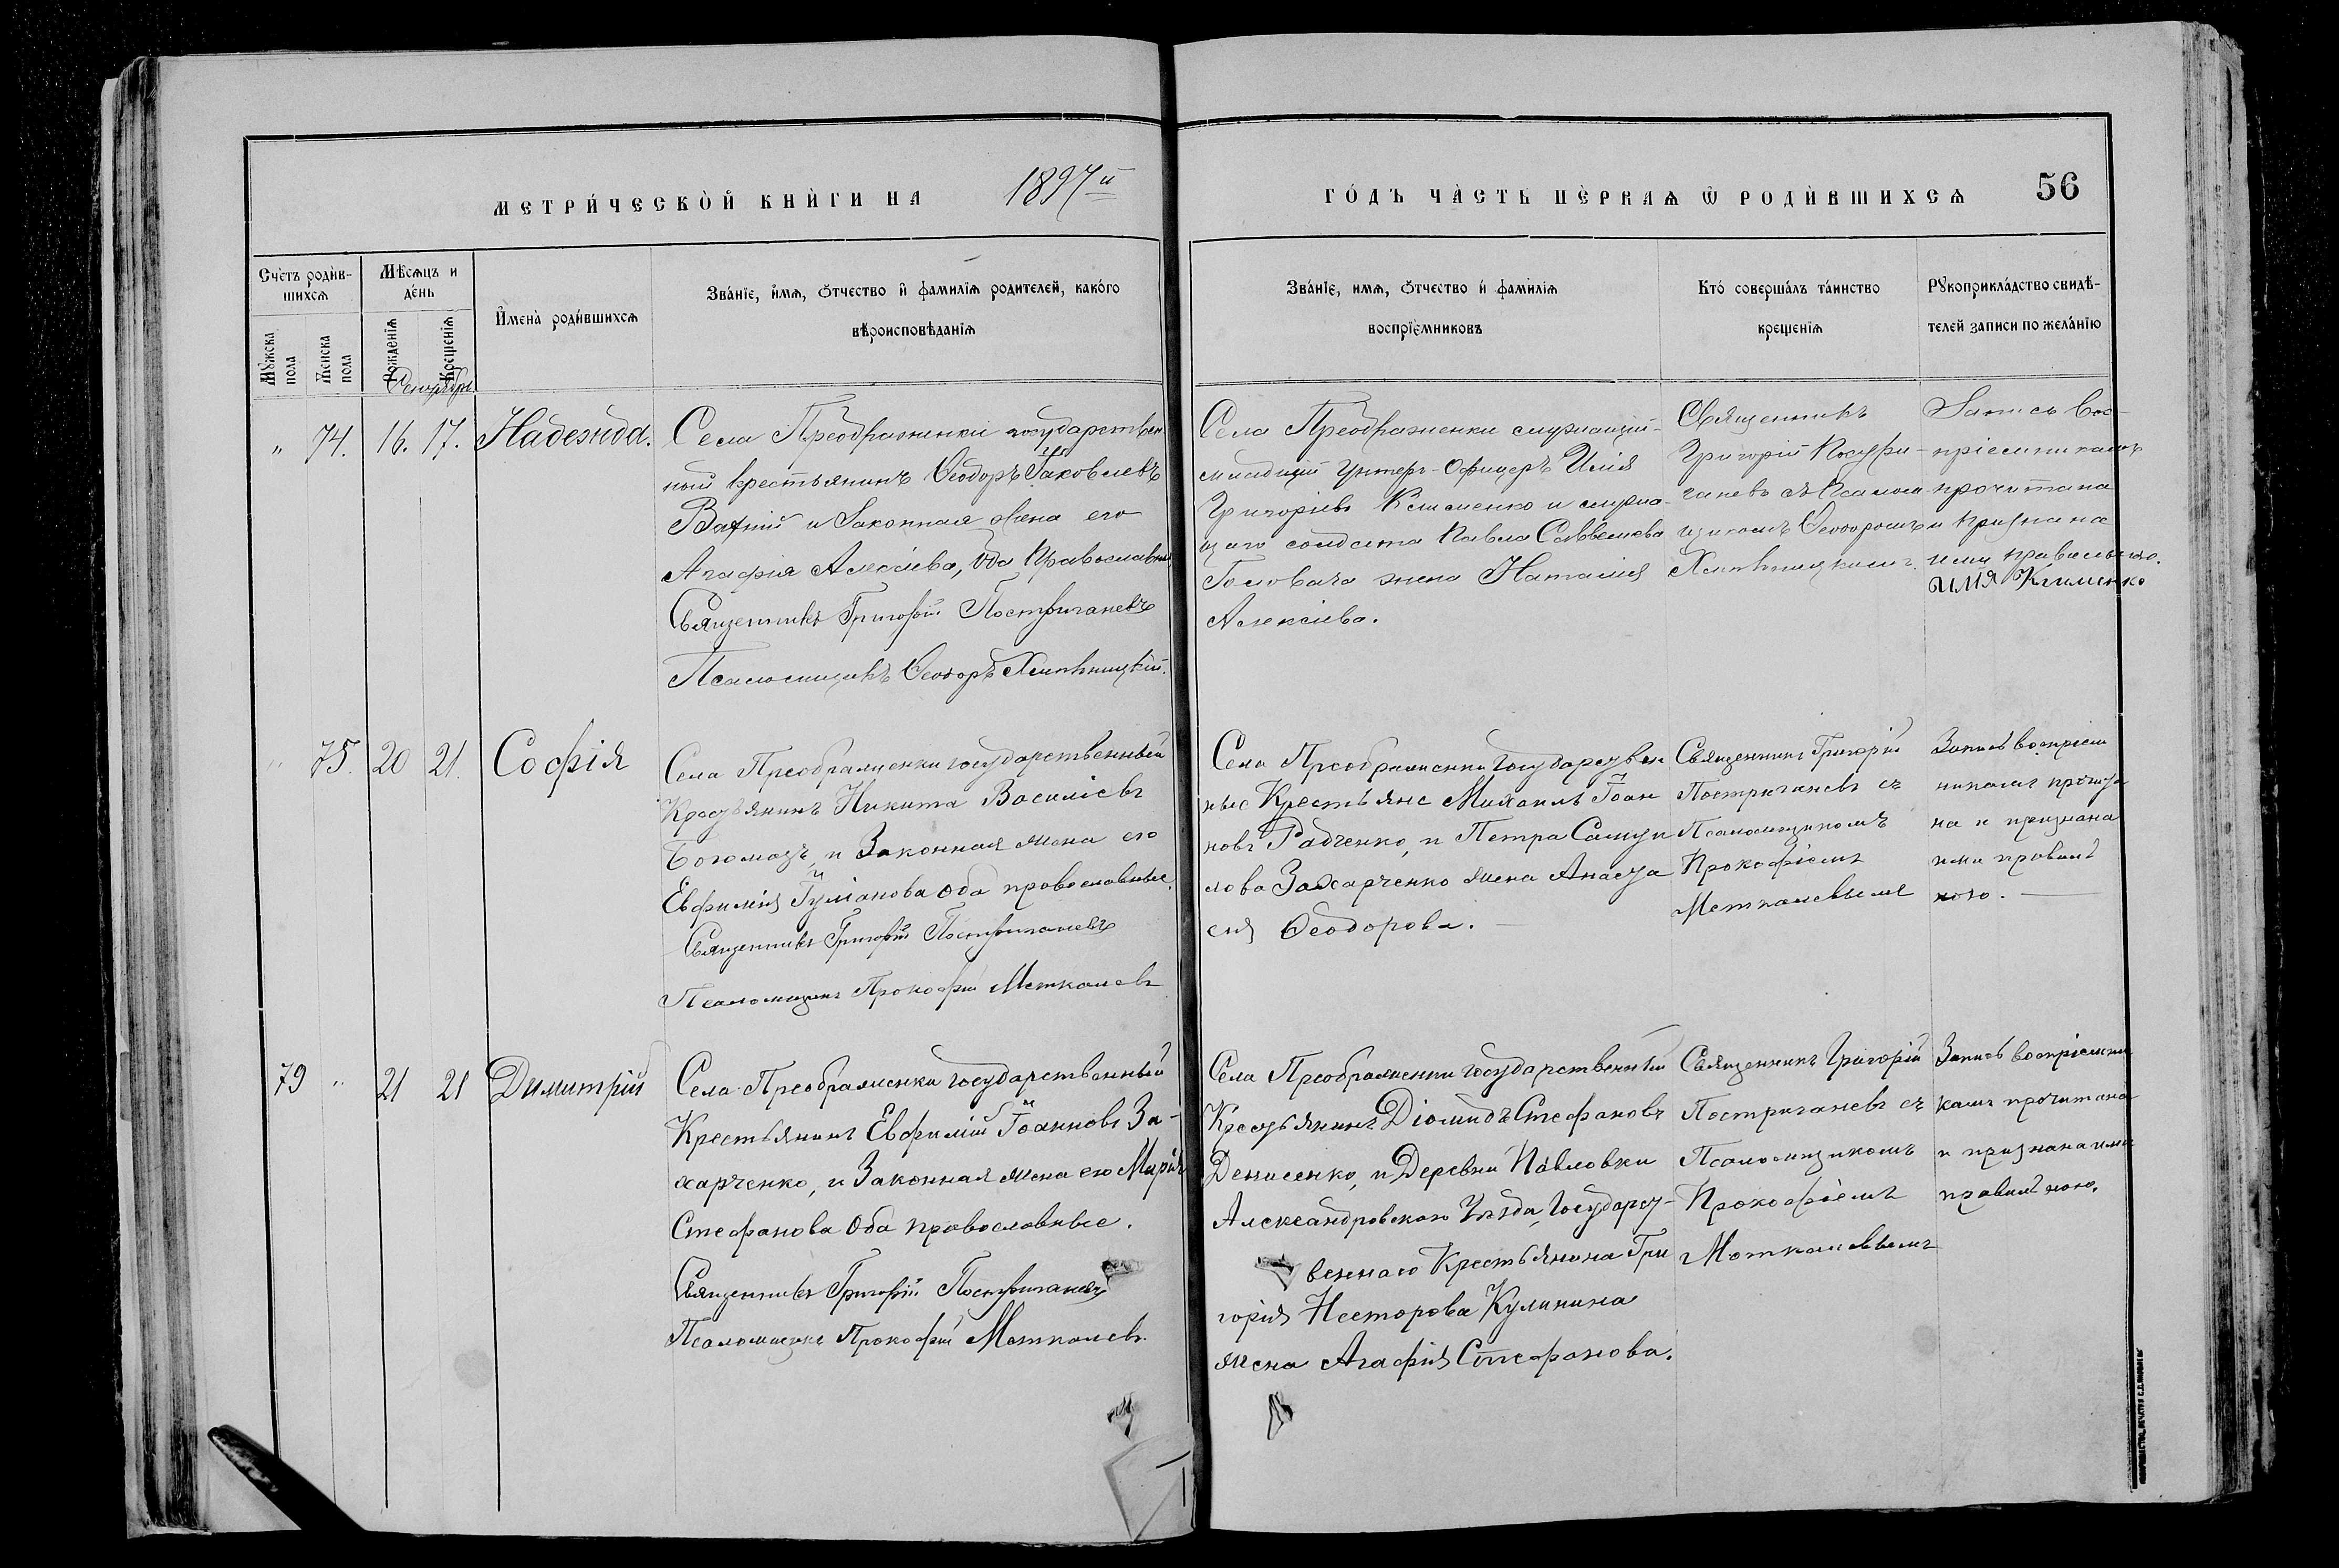 МЕТРИ́ЧЕСКОЙ КНИ́ГИ НА 1897й
ГО́ДЪ ЧА́СТЬ ПЕ́РВАѦ Ѡ РОДИ́ВШИХСѦ 56
Сче́тъ роди́в-
шихсѧ
Мꙋжска пола
Женска пола
Мѣсѧцъ и
де́нь
Рожденїѧ
Крещенїѧ
И҆мена̀ роди́вшихсѧ
Зва́нїе, и҆́мѧ, ѻ҆́тчество и҆ фамилїѧ родителей, како́гѡ
вѣроисповѣданїѧ
Зва́нїе, имѧ, ѻ҆́тчество и҆ фами́лїѧ
воспрїе́мниковъ
Кто́ соверша́лъ та́инство
крещенїѧ
Рꙋкоприкла́дство свидѣ-
телей записи по жела́нїю
Сентябрь
" 74. 16. 17. Надежда.
Села Преображенки государствен
ный крестьянинъ Ѳеодоръ Іаковлевъ
и Законная жена его
Агафія Алексіева, оба Православные
Священникъ Григорій Постриганевъ
Псаломщикъ Ѳеодоръ
Села Преображенки служащій
младшій Унтеръ-Офицеръ Илія
Григоріевъ Клименко и служа-
щаго солдата Павла Савельева
Головача жена Наталія
Алексіева.
Священникъ
Григорій Постри-
ганевъ съ Псалом-
щикомъ Ѳеодоромъ
Запись вос-
пріемникамъ
прочитана
и признана
ими правильною.
Илія Клименко
" 75. 20 21. Софія
Села Преображенки государственный
Крестьянинъ Никита Василіевъ
Богомазъ, и Законная жена его
Евфимія Іуліанова оба православные.
Священникъ Григорій Постриганевъ
Псаломщикъ Прокофій Меткалевъ
Села Преображенки Государствен
ные Крестьяне Михаилъ Іоан
новъ Радченко, и Петра Самуи
лова Захарченко жена Анаста
сія Ѳеодорова.
Священникъ Григорій
Постриганевъ съ
Псаломщикомъ
Прокофіемъ
Меткалевымъ
Запись воспріем
никамъ прочита
на и признана
ими правиль
ною.
79 " 21 21 Димитрій
Села Преображенки государственный
Крестьянинъ Евфимій Іоанновъ За-
харченко, и Законная жена его Марія
Стефанова Оба православные.
Священникъ Григорій Постриганевъ
Псаломщикъ Прокофій Меткалевъ
Села Преображенки государственный
Крестьянинъ Діомидъ Стефановъ
Денисенко, и Деревни Павловки
Александровскаго Уѣзда, Государст-
веннаго Крестьянина Гри
горія Несторова Кулинина
жена Агафія Стефанова.
Священникъ Григорій
Постриганевъ съ
Псаломщикомъ
Прокофіемъ
Меткалевымъ
Запись воспріемни
камъ прочитана
и признана ими
правильною.